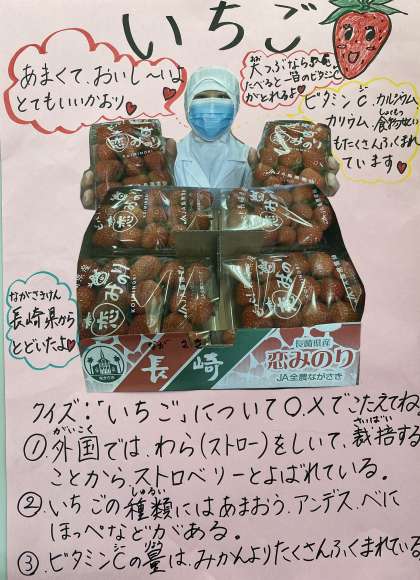 いちご
あまくて、おいし〜いよ
とてもいいかおり
大つぶなら5〜7こ
たべると一日のビタミンC
がとれるよ
ビタミンC、カルシウム、
カリウム、食物せんい
もたくさんふくまれ
ています
恋みのり
KOIMINORI
恋みのり
ながさきけん
長崎県から
とどいたよ
長崎
長崎県産
恋みのり
JA全農ながさき
クイズ:「いちご」について〇、×でこたえてね
①外国では、わら(ストロー)をしいて、栽培する
ことから、ストロベリーとよばれている。
②いちごの種類にはあまおう、アンデス、べに
ほっぺなどがある。
③ビタミンCの量は、みかんよりたくさんふくまれている